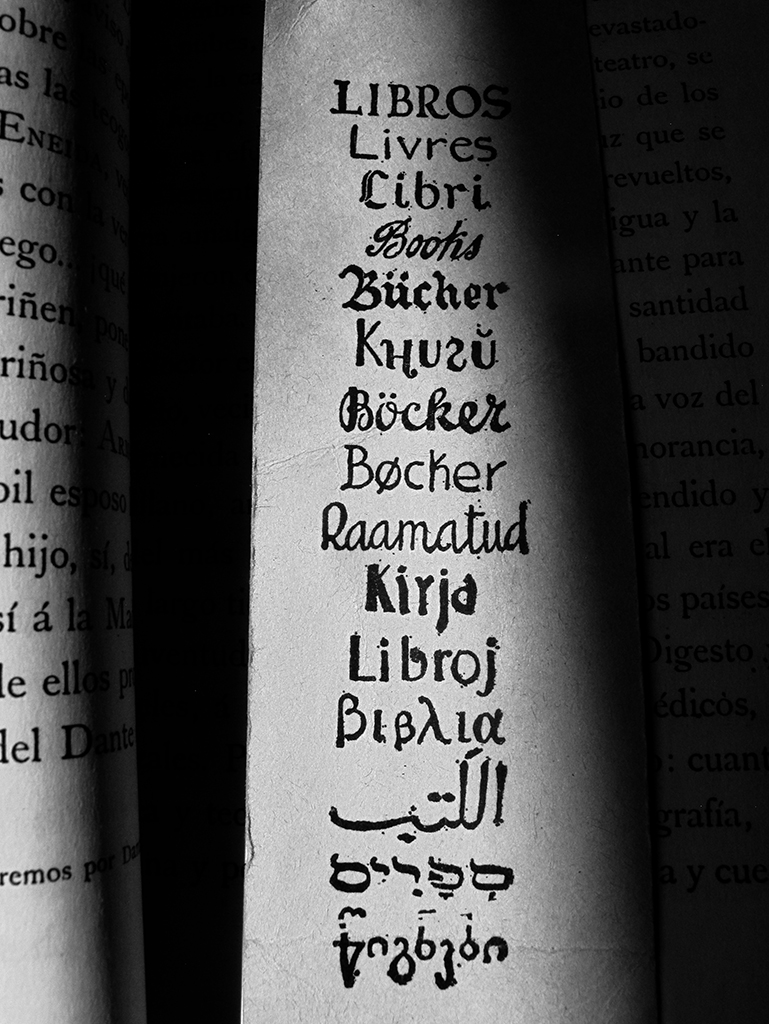 obre
as las
ENEI
s con la ve
ego... ¡qué
riñen, pone
riñosa y d
udor: AR
oil esposo
hijo, sí, d
sí á la Ma
de ellos pr
del Dante
remos por Da
LIBROS
Livres
Libri
Books
Bücher
Книгй
Böcker
Bøcker
Raamatud
Kirja
Libroj
βιβλια
الكتب
סְפָרִים
evastado-
teatro, se
io de los
z que se
revueltos,
igua y la
ante para
santidad
bandido
a voz del
norancia,
endido y
al era el
os países
Digesto
édicos,
o: cuant
grafía,
a y cue